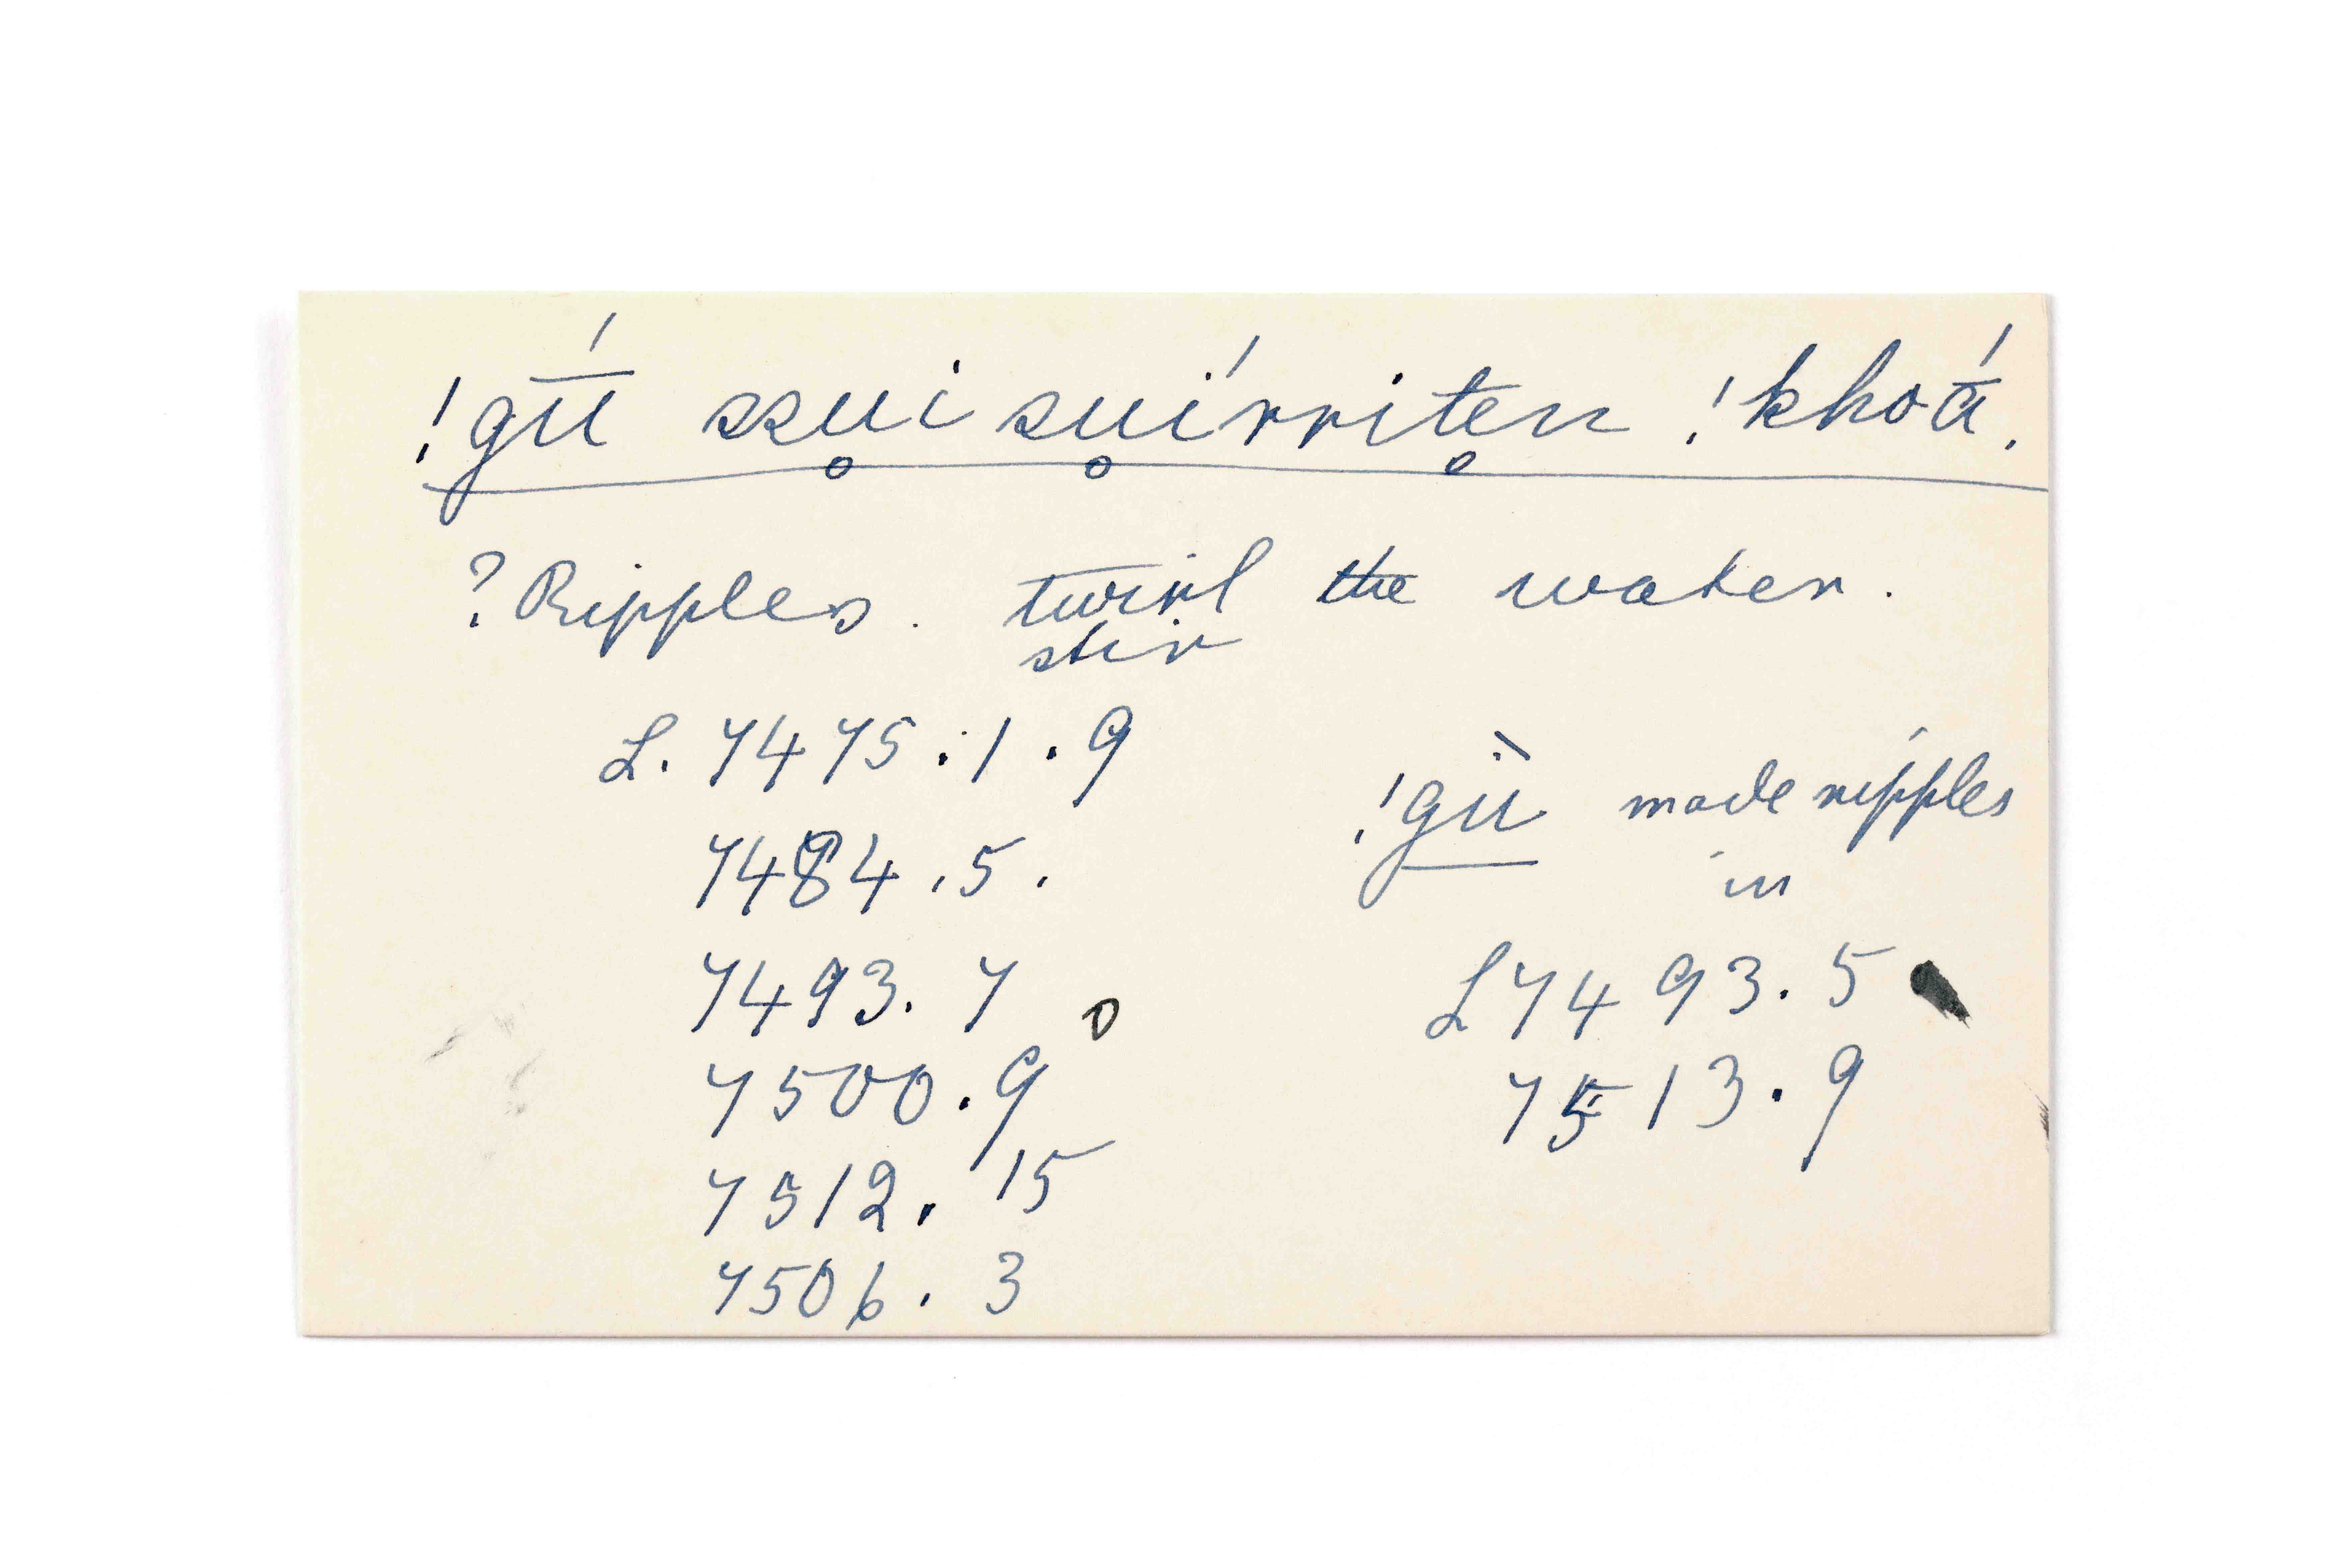 !gū́ ss̥ui su̥írrite̥n !khoā́.
? Ripples. twirl the water.
stir
L. 7475.1.9
7484.5.
7493.7
7500.9
7512.15
7506.3
!gǜ made ripples
in
L 7493.5
7513.9